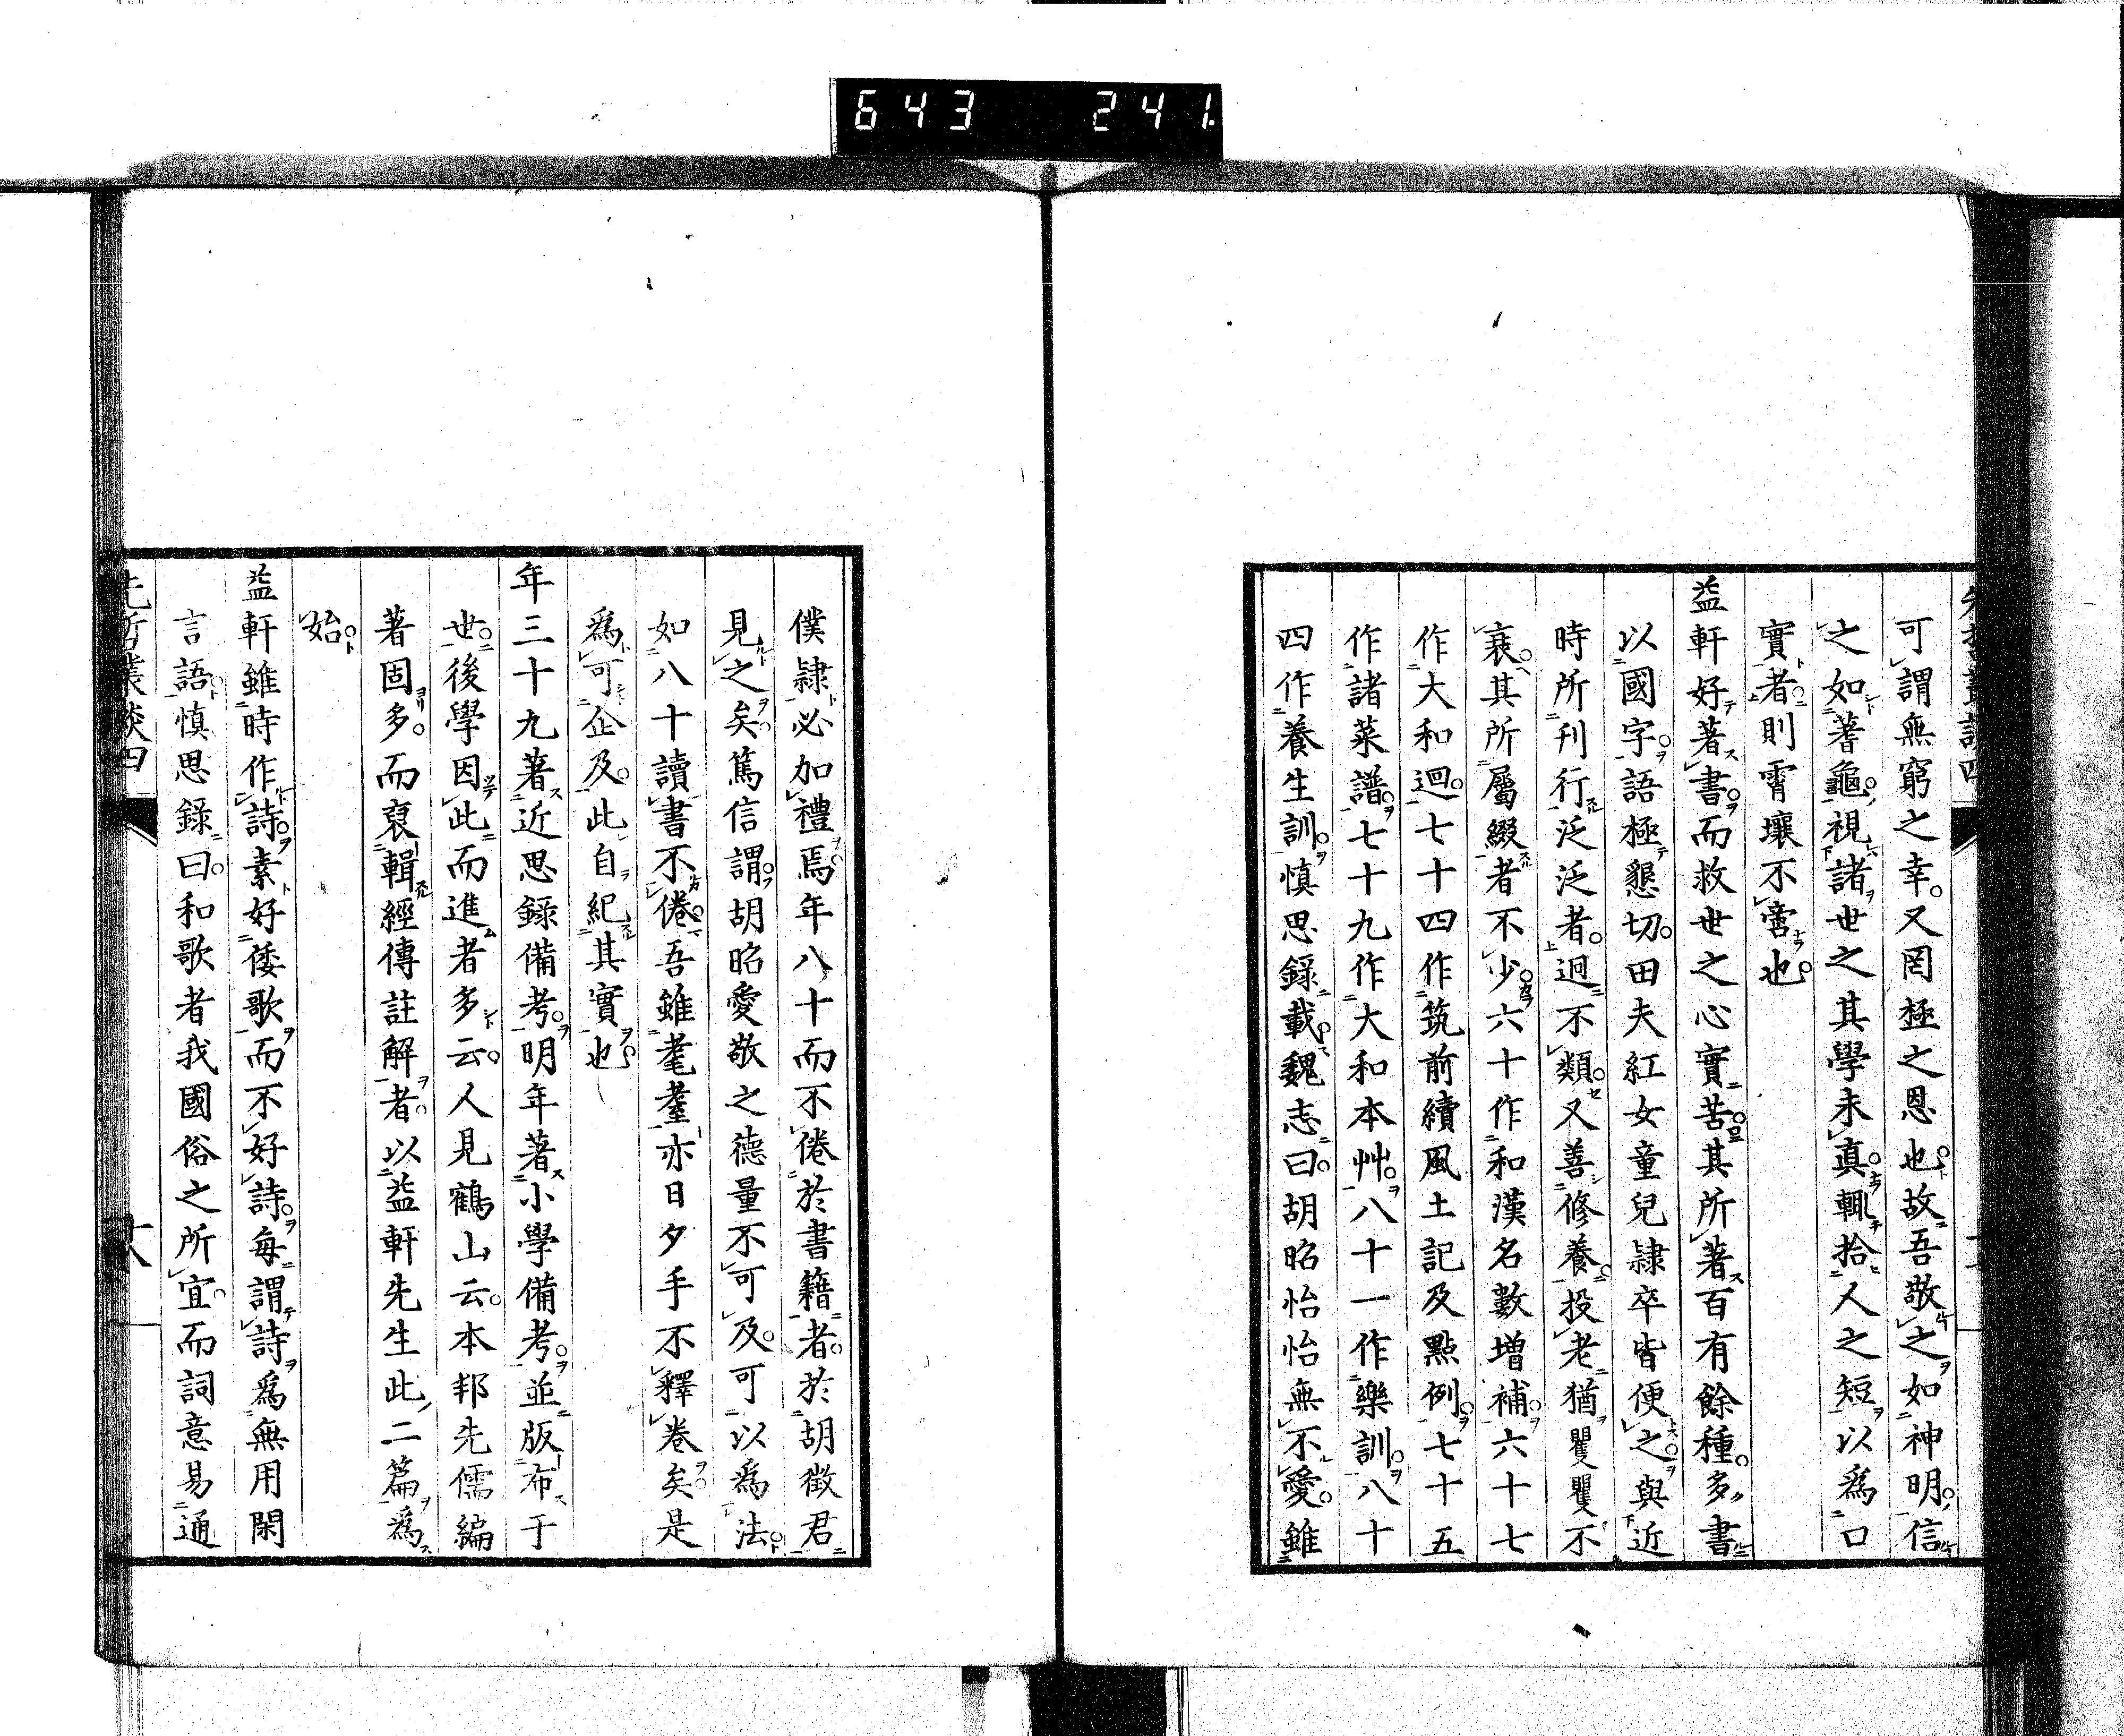 643 241
可謂無窮之幸。又罔極之恩也。故吾敬之如神明。信
之如蓍龜。視諸世之其學未真。輒拾人之短以爲口
實者。則霄壤不啻也。
益軒好著書。而救世之心實苦。其所著百有餘種。多書
以國字。語極懇切。田夫紅女童兒隸卒皆便之。與近
時所刊行泛泛者。迥不類。又善修養。投老猶矍矍不
衰。其所屬綴者不少。六十作和漢名數增補。六十七
作大和迴。七十四作筑前續風土記及點例。七十五
作諸菜譜。七十九作大和本艸。八十一作樂訓。八十
四作養生訓。慎思錄載。魏志曰。胡昭怡怡無不愛。雖
僕隸必加禮焉。年八十而不倦於書籍者。於胡徵君
見之矣。篤信謂。胡昭愛敬之德量不可及。可以爲法。
如八十讀書不倦。吾雖耄耋亦日夕手不釋卷矣。是
爲可企及。此自紀其實也。
年三十九著近思錄備考。明年著小學備考。並版布于
世。後學因此而進者多云。人見鶴山云。本邦先儒編
著固多。而裒輯經傳註解者。以益軒先生此二篇爲
始。
益軒雖時作詩。素好倭歌而不好詩。每謂詩爲無用閑
言語。慎思錄曰。和歌者我國俗之所宜。而詞意易通
先哲叢談四